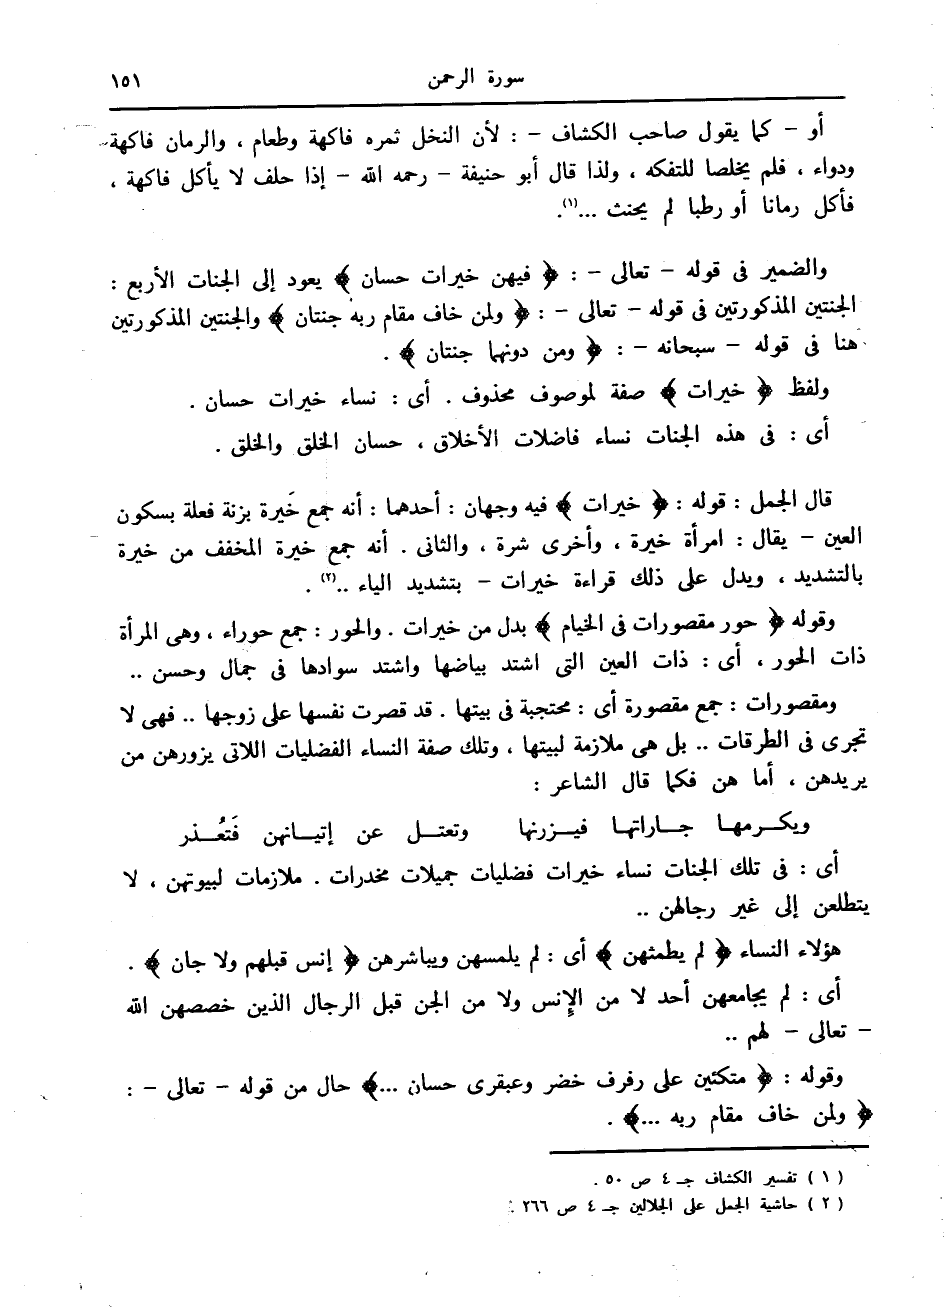 سورة الرحمن ١٥١
أو – كما يقول صاحب الكشاف – : لأن النخل ثمره فاكهة وطعام ، والرمان فاكهة
ودواء ، فلم يخلصا للتفكه ، ولذا قال أبو حنيفة – رحمه الله – إذا حلف لا يأكل فاكهة ،
فأكل رمانا أو رطبا لم يحنث ...(١).
والضمير فى قوله – تعالى – : ﴿ فيهن خيرات حسان ﴾ يعود إلى الجنات الأربع :
الجنتين المذكورتين فى قوله – تعالى – : ﴿ ولمن خاف مقام ربه جنتان ﴾ والجنتين المذكورتين
هنا فى قوله – سبحانه – : ﴿ ومن دونهما جنتان ﴾ .
ولفظ ﴿ خيرات ﴾ صفة لموصوف محذوف . أى : نساء خيرات حسان .
أى : فى هذه الجنات نساء فاضلات الأخلاق ، حسان الخلق والخلق .
قال الجمل : قوله : ﴿ خيرات ﴾ فيه وجهان : أحدهما : أنه جمع خَيرة بزنة فعلة بسكون
العين – يقال : امرأة خيرة ، وأخرى شرة ، والثانى . أنه جمع خيرة المخفف من خيرة
بالتشديد ، ويدل على ذلك قراءة خيرات – بتشديد الياء ..(٢) .
وقوله ﴿ حور مقصورات فى الخيام ﴾ بدل من خيرات . والحور : جمع حوراء ، وهى المرأة
ذات الحور ، أى : ذات العين التى اشتد بياضها واشتد سوادها فى جمال وحسن ..
ومقصورات : جمع مقصورة أى : محتجبة فى بيتها . قد قصرت نفسها على زوجها .. فهى لا
تجرى فى الطرقات .. بل هى ملازمة لبيتها ، وتلك صفة النساء الفضليات اللاتى يزورهن من
يريدهن ، أما هن فكما قال الشاعر :
ويكـرمهـا جـاراتهـا فيـزرنها وتعتـل عن إتيـانهن فَتُعْـذر
أى : فى تلك الجنات نساء خيرات فضليات جميلات مخدرات . ملازمات لبيوتهن ، لا
يتطلعن إلى غير رجالهن ..
هؤلاء النساء ﴿ لم يطمثهن ﴾ أى : لم يلمسهن ويباشرهن ﴿ إنس قبلهم ولا جان ﴾ .
أى : لم يجامعهن أحد لا من الإنس ولا من الجن قبل الرجال الذين خصصهن الله
– تعالى – لهم ..
وقوله : ﴿ متكئين على رفرف خضر وعبقرى حسان ...﴾ حال من قوله – تعالى – :
﴿ ولمن خاف مقام ربه ...﴾ .
( ١ ) تفسير الكشاف جـ ٤ ص ٥٠ .
( ٢ ) حاشية الجمل على الجلالين جـ ٤ ص ٢٦٦ .